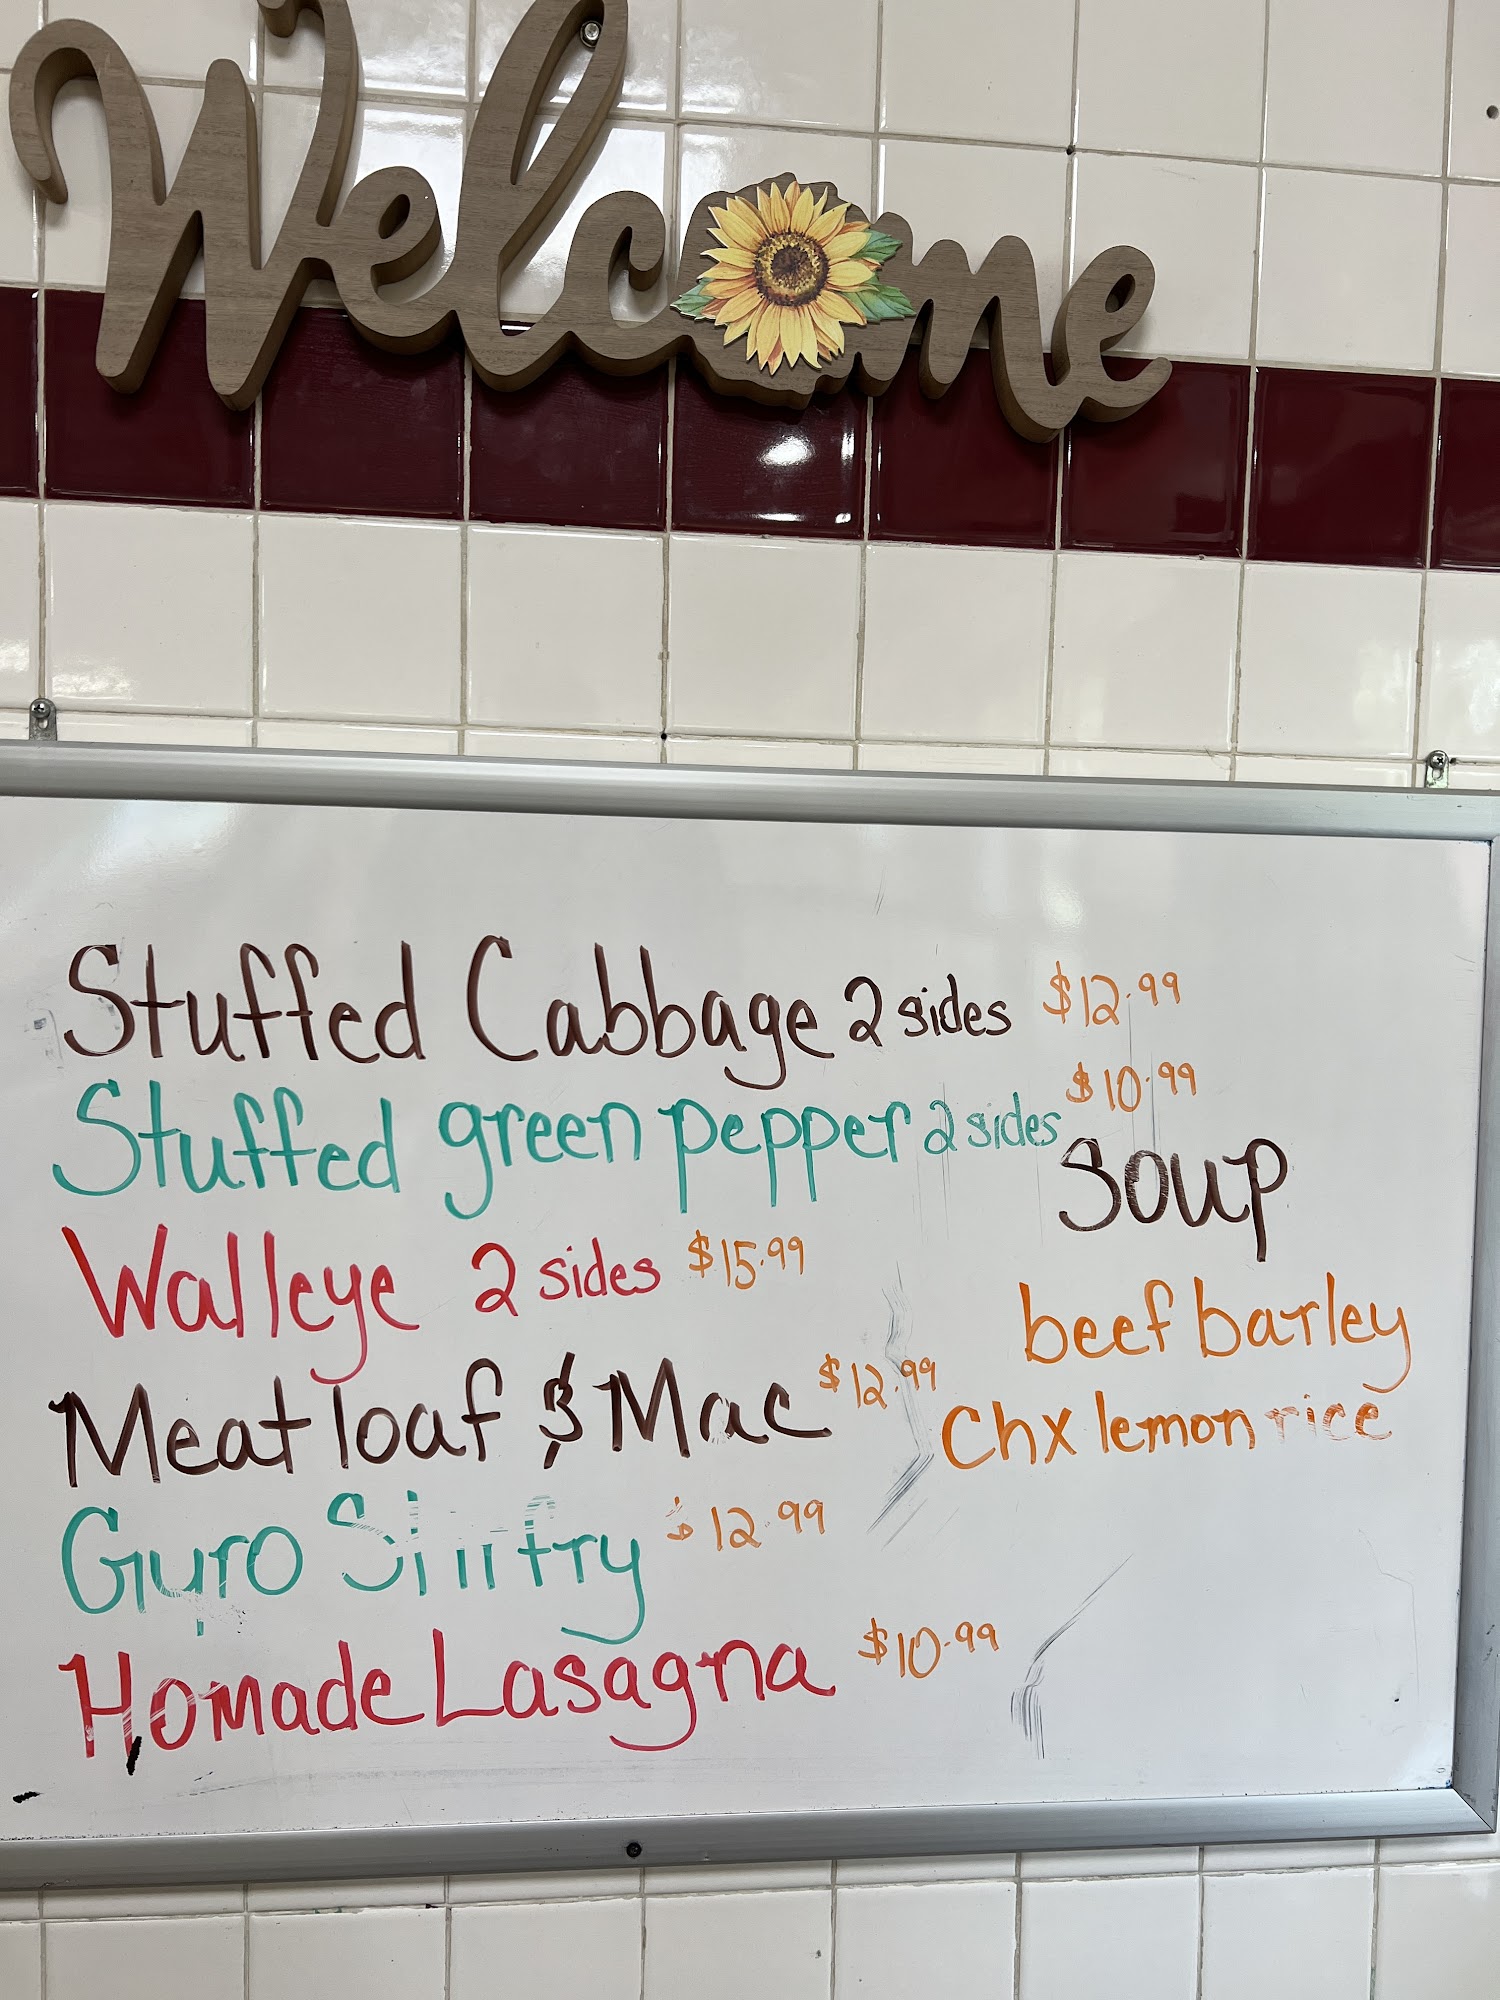 Welcome
Stuffed Cabbage 2 sides $12.99
Stuffed green pepper 2 sides $10.99
Walleye 2 sides $15.99
Meatloaf & Mac $12.99
Gyro Stirfry $12.99
Homade Lasagna $10.99
Soup
beef barley
Chx lemon rice